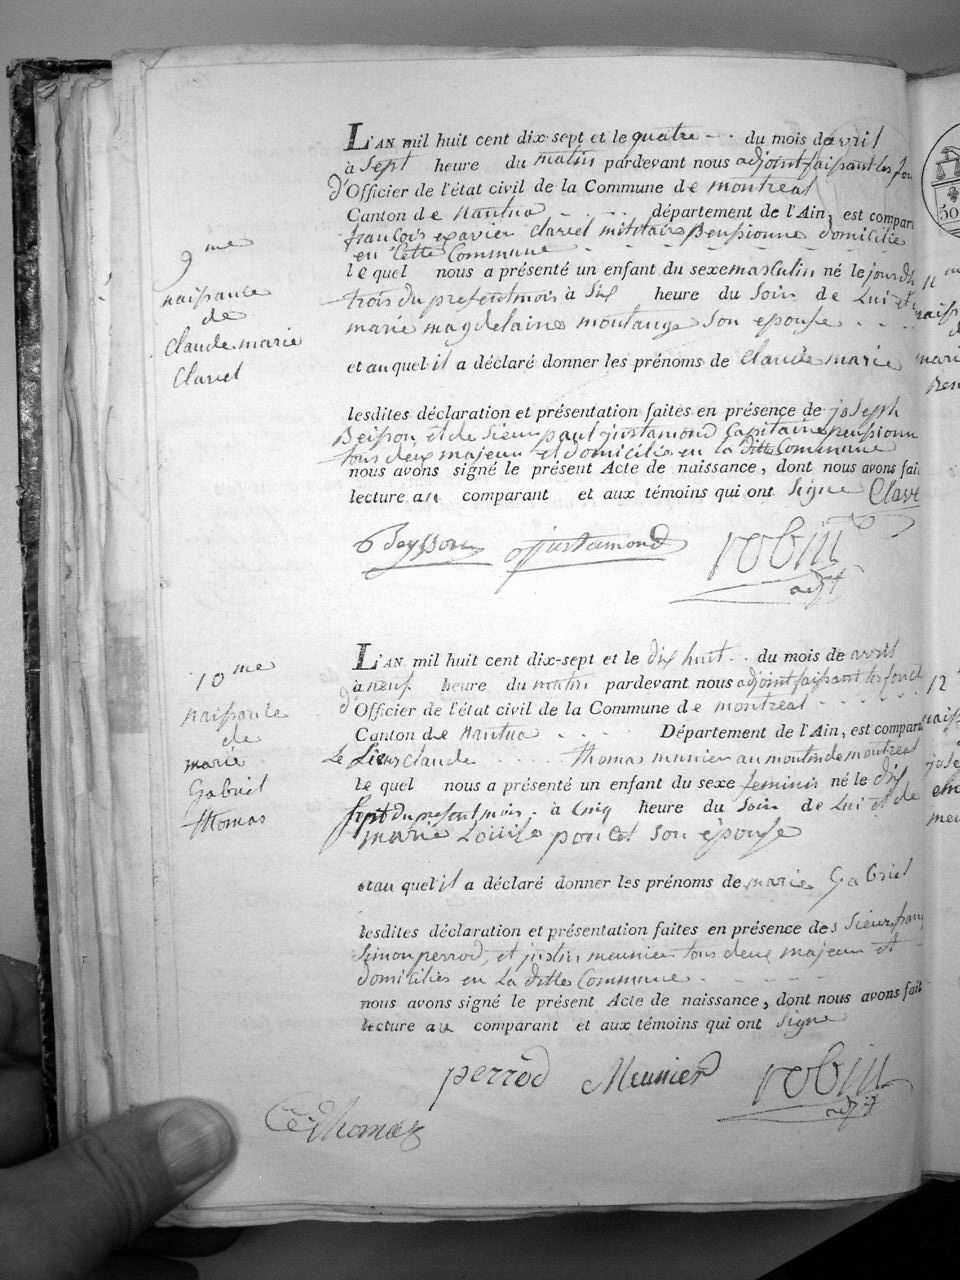 9me
naissance
de
Claude marie
Clavel
L'AN mil huit cent dix-sept et le quatre - - du mois davril
à Sept heure du matin pardevant nous adjoint faissant les fon
d'Officier de l'état civil de la Commune de montreal
Canton de Nantua - - - - département de l'Ain, est compar
francois exavier Clavel militaire Pensionne domicilie
en Cette Commune - - - - - -
le quel nous a présenté un enfant du sexe masculin né le jourdh
trois du present mois à Six heure du Soir de Lui et
marie magdelaine montange Son epouse - - -
et au quel il a déclaré donner les prénoms de Claude marie
lesdites déclaration et présentation faites en présence de joseph
Beisson et de Sieur paul justamond Capitaine pensionn
tous deux majeur et domicilie en la ditte Commune
nous avons signé le présent Acte de naissance, dont nous avons fai
lecture au comparant et aux témoins qui ont Signe Clave
Beysson justamond robin
adjt
10me
naissance
de
marie
Gabriel
Thomas
L'AN mil huit cent dix-sept et le dix huit - - du mois de avril
à neuf heure du matin pardevant nous adjoint faissant les fonct
d'Officier de l'état civil de la Commune de montreal - - - -
Canton de Nantua - - - - Département de l'Ain, est compar
Le Sieur Claude - - - - Thomas munier au moulin de montreal
le quel nous a présenté un enfant du sexe feminin né le dix
sept du present mois - à Cinq heure du Soir de Lui et de
marie Louise poncet son épouse
et au quel il a déclaré donner les prénoms de marie Gabriel
lesdites déclaration et présentation faites en présence des Sieur fran
Simon perrod, et justin meunier tous deux majeur et
domicilies en La ditte Commune - - - - -
nous avons signé le présent Acte de naissance, dont nous avons fait
lecture au comparant et aux témoins qui ont Signe
perrod Meunier robin
adjt
Thomas
11me
naiss
marie
Ben
12
naiss
jose
meu
50